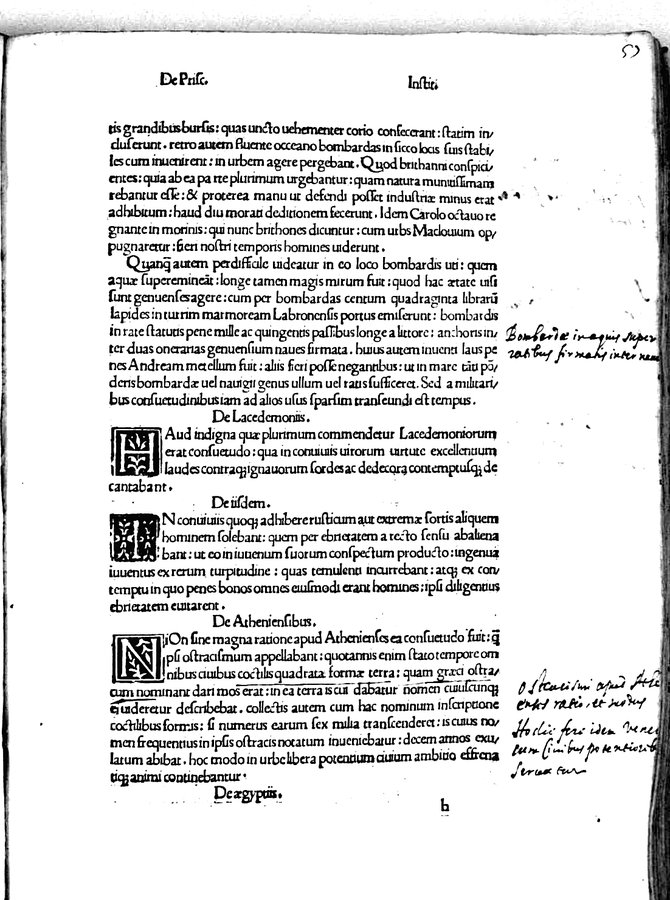 59
De Prisc. Instit.
tis grandibus bursis: quas uncto uehementer corio confecerant: statim in/
cluserunt. retro autem fluente occeano bombardas in sicco locis suis stabi/
les cum inuenirent: in urbem agere pergebant. Quod brithanni conspici/
entes: quia ab ea parte plurimum urgebantur: quam natura munitissimam
rebantur esse: & proterea manu ut defendi posset industriæ minus erat
adhibitum: haud diu morati deditionem fecerunt. Idem Carolo octauo re
gnante in morinis: qui nunc brithones dicuntur: cum urbs Maclouium op/
pugnaretur: fieri nostri temporis homines uiderunt.
Quanq̃ autem perdifficile uideatur in eo loco bombardis uti: quem
aquæ superemineãt: longe tamen magis mirum fuit: quod hac ætate uisi
sunt genuenses agere: cum per bombardas centum quadraginta librarũ
lapides in turrim marmoream Labronensis portus emiserunt: bombardis
in rate statutis pene mille ac quingentis passibus longe a littore: anchoris in/
ter duas onerarias genuensium naues firmata. huius autem inuenti laus pe
nes Andream metellum fuit: aliis fieri posse negantibus: ut in mare tãti põ/
deris bombardæ uel nauigii genus ullum uel ratis sufficeret. Sed a militari/
bus consuetudinibus iam ad alios usus sparsim transeundi est tempus.
Bombardæ in aquis super
ratibus firmatis inter naues
De Lacedemoniis.
HAud indigna quæ plurimum commendetur Lacedemoniorum
erat consuetudo: qua in conuiuiis uirorum uirtute excellentium
laudes contraq; ignauorum sordes ac dedecora contemptusq; de
cantabant.
De iisdem.
IN conuiuiis quoq; adhibere rusticum aut extremæ sortis aliquem
hominem solebant: quem per ebrietatem a recto sensu abaliena
bant: ut eo in iuuenum suorum conspectum producto: ingenua
iuuentus ex rerum turpitudine: quas temulenti incurrebant: atq; ex con/
temptu in quo penes bonos omnes eiusmodi erant homines: ipsi diligentius
ebrietatem euitarent.
De Atheniensibus.
NOn sine magna ratione apud Athenienses ea consuetudo fuit: q̃
ipsi ostracismum appellabant: quotannis enim stato tempore om
nibus ciuibus coctilis quadrata formæ terra: quam græci ostra/
cum nominant dari mos erat: in ea terra is cui dabatur nomen cuiuscunq;
ei uideretur describebat. collectis autem cum hac nominum inscriptione
coctilibus formis: si numerus earum sex milia transcenderet: is cuius no/
men frequentius in ipsis ostracis notatum inueniebatur: decem annos exu/
latum abibat. hoc modo in urbe libera potentium ciuium ambitio effrena
tiq; animi continebantur.
Ostracismi apud Athe
nienses ratio, et modus
Hodie fere idem Vene
cum civibus potentiorib
servatur
De ægyptiis.
h